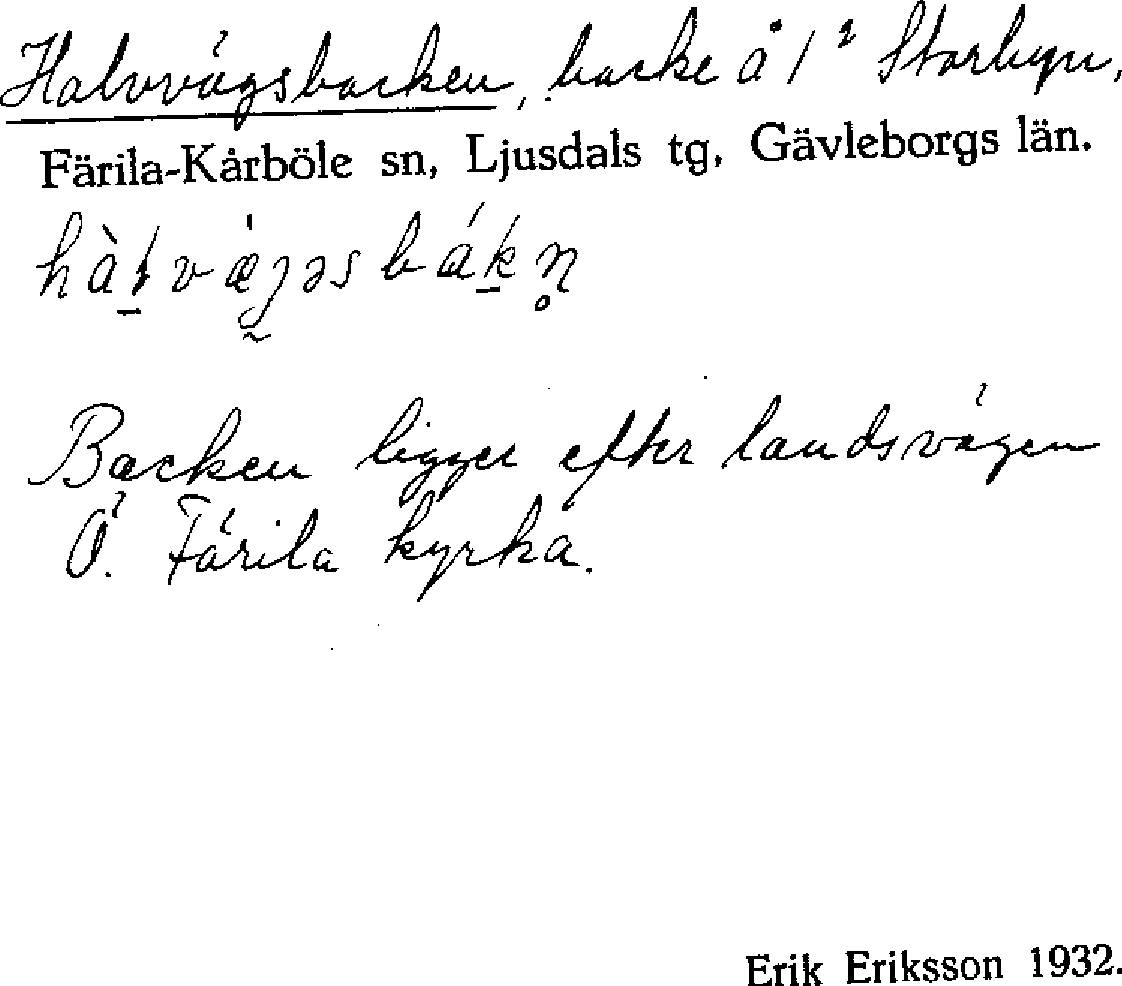 Halvvägsbacken, backe å 1² Storbyn,
Färila-Kårböle sn, Ljusdals tg, Gävleborgs län.
Backen ligger efter landsvägen
Ö. Färila kyrka.
Erik Eriksson 1932.